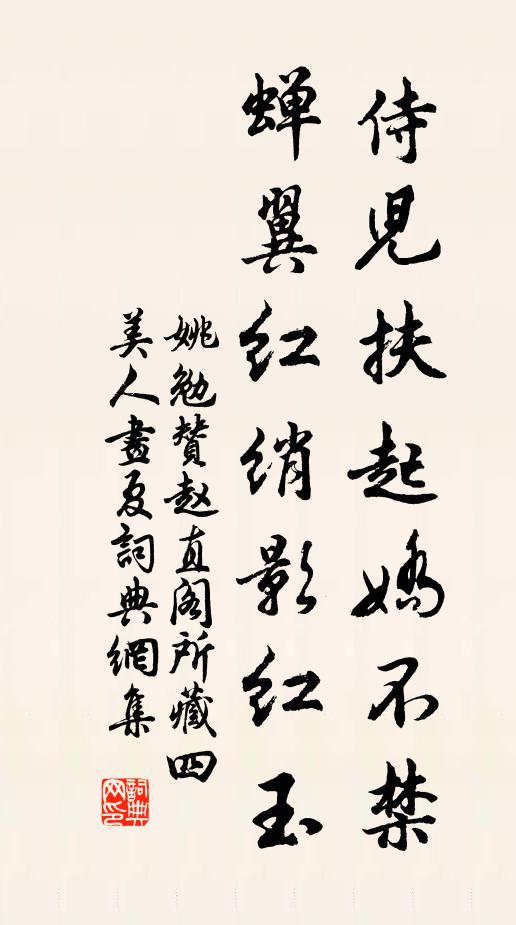 侍児扶起嬌不禁
蝉翼红绡影红玉
姚勉賛赵直阁所藏四
美人畫夏詞典網集
詞典网印